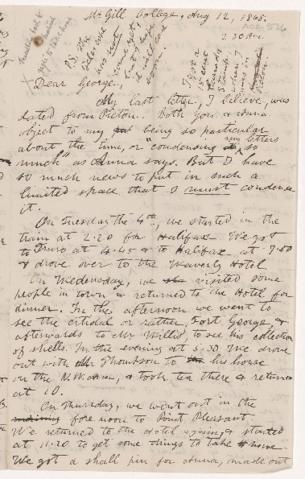 McGill College, Aug 12, 1868.
2.30 P.M.
Dear George,
My last letter, I believe, was
dated from Pictou. Both you & Anna
object to my being so particular
about the time, or condensing my letters so
much as Anna says. But I have
so much news to put in such a
limited space that I must condense
it.
On Tuesday the 4th, we started in the
train at 2.20 for Halifax. We got
to Truro at 4.40 & to Halifax at 7.50
& drove over to the Waverly Hotel.
On Wednesday, we visited some
people in town & returned to the Hotel for
dinner. In the afternoon we went to
see the citidal or rather, Fort George &
afterwards to Mr Willis, to see his collection
of shells. In the evening at 5.30 we drove
out with Mr Thompson to his house
on the N.W. Arm, & took tea there & returned
at 10.
On Thursday, we went out in the
fore noon to Point Pleasant.
We returned to the Hotel & started
at 11.20 to get some things to take home.
We got a shall pin for Anna, made out
P.S. The